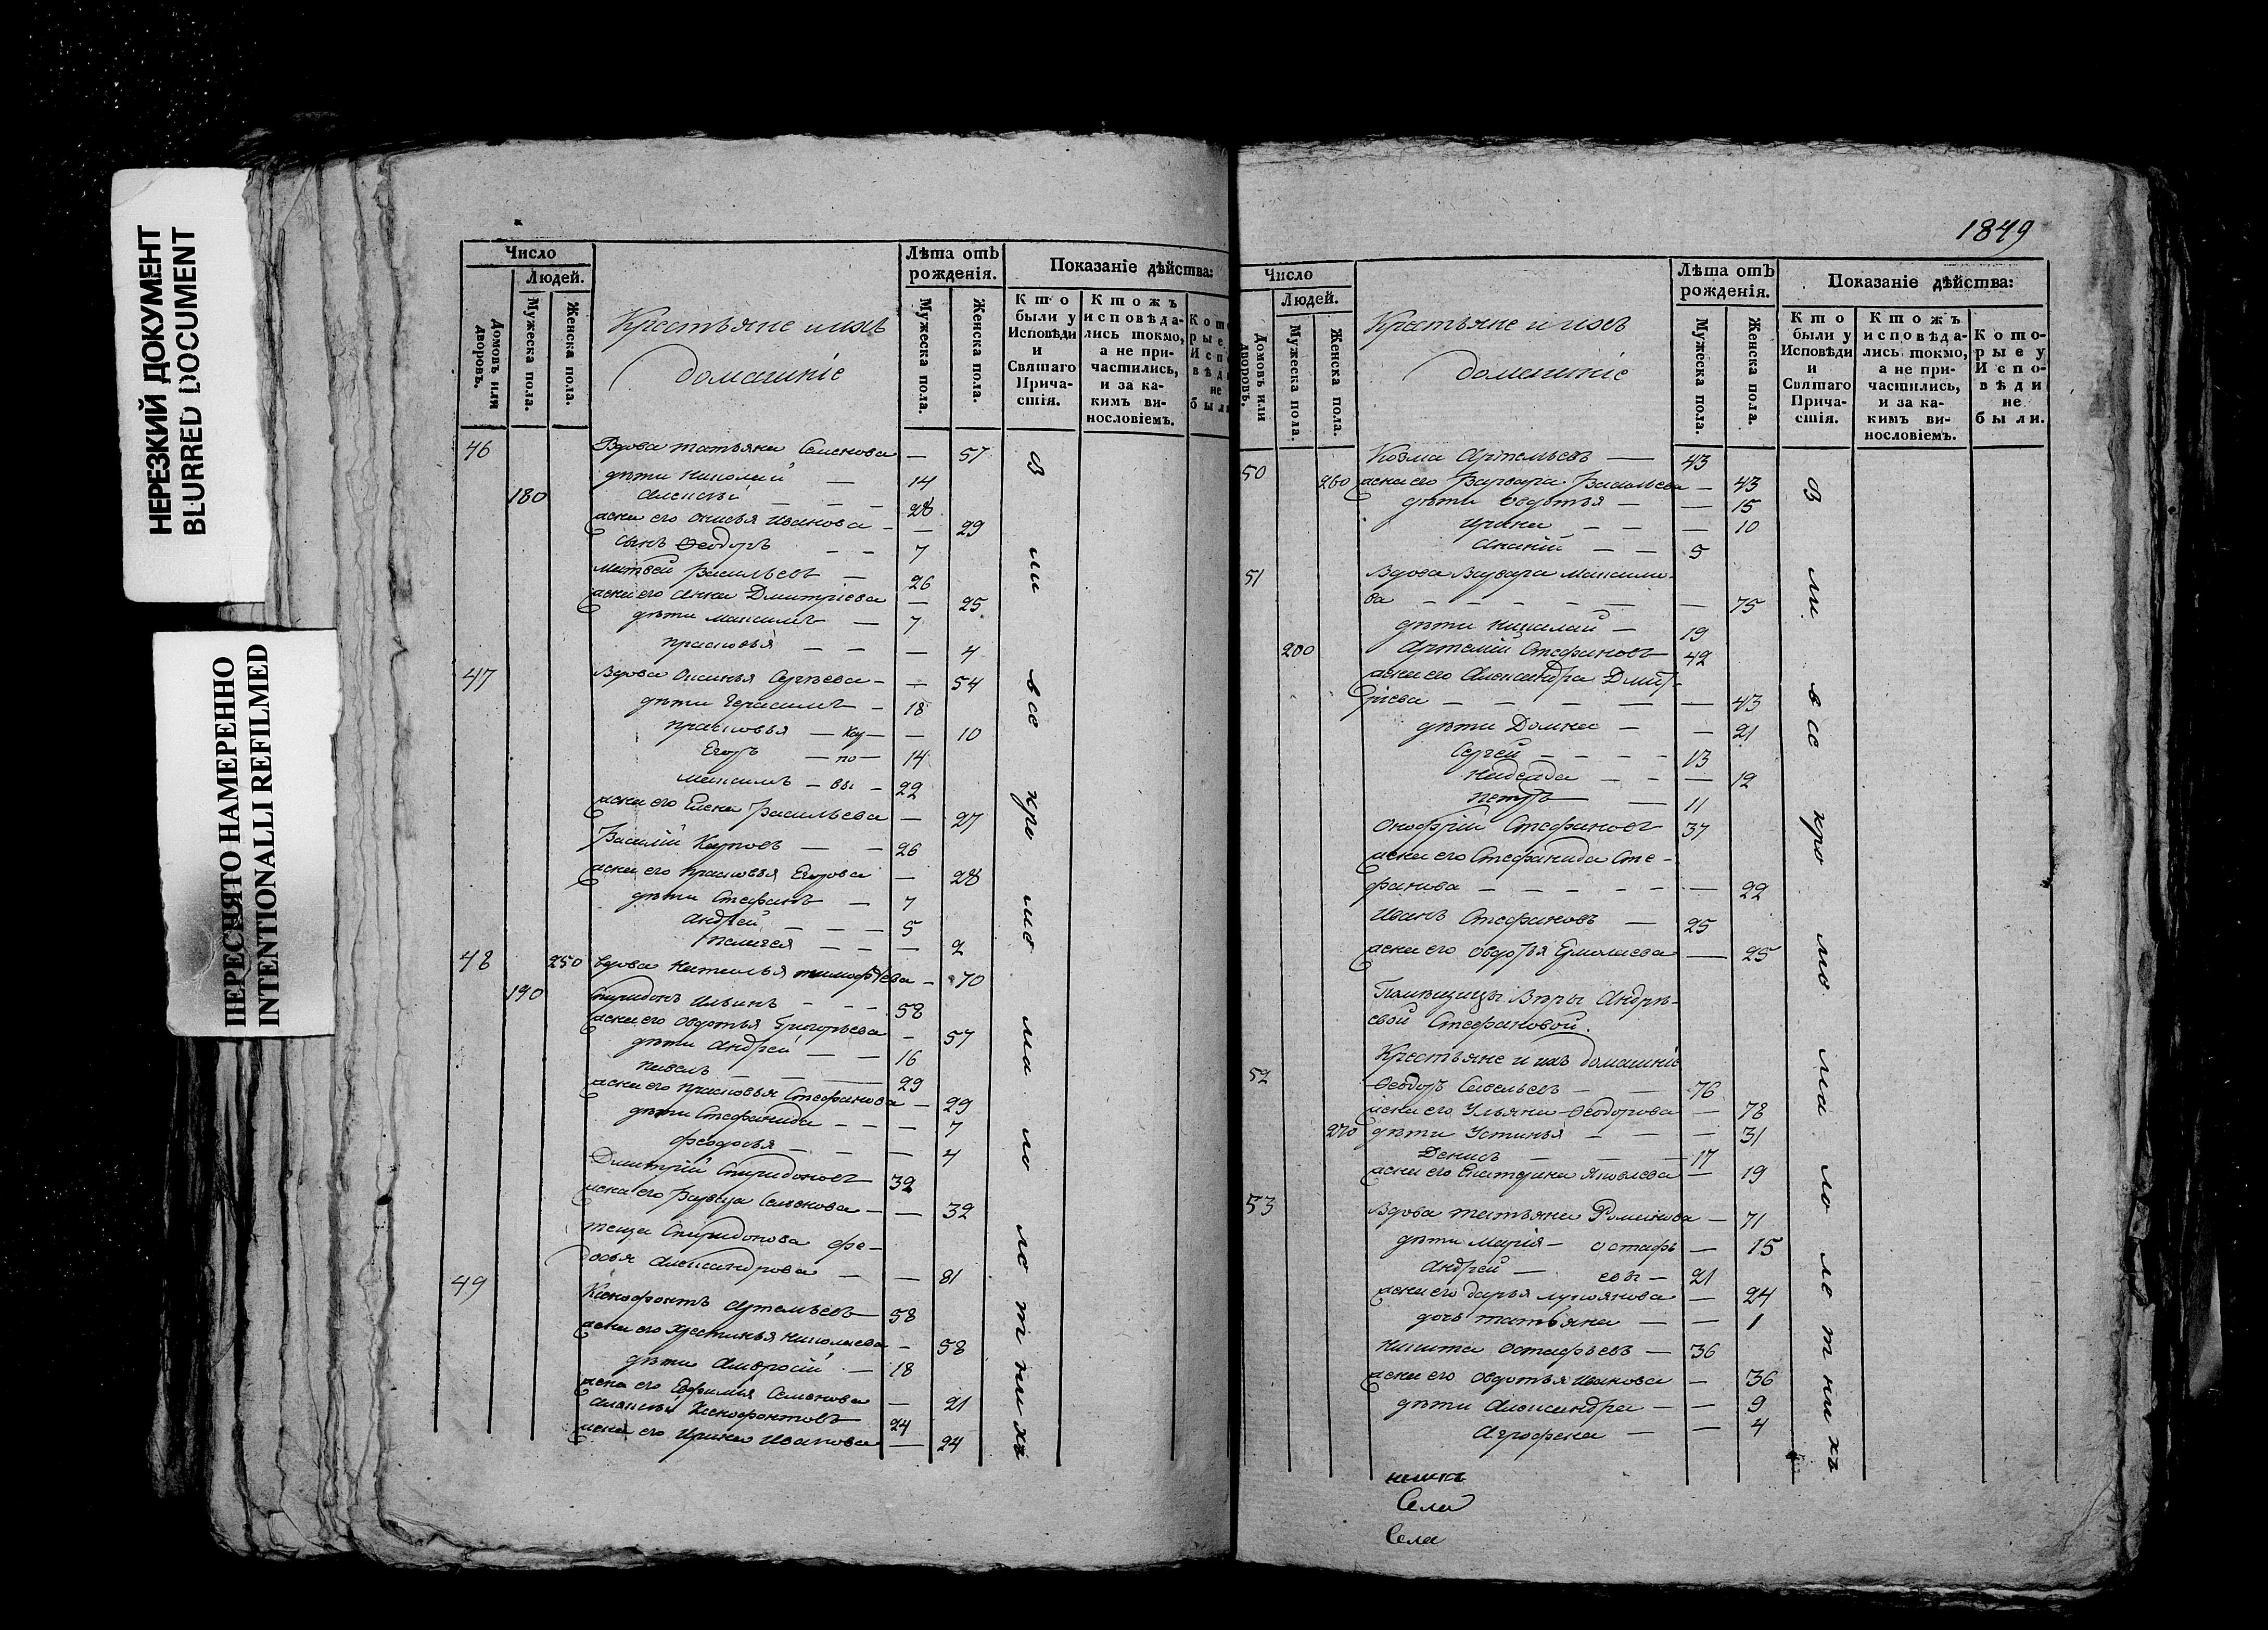 НЕРЕЗКИЙ ДОКУМЕНТ
BLURRED DOCUMENT
ПЕРЕСНЯТО НАМЕРЕННО
INTENTIONALLI REFILMED
Число
Людей.
Домовъ или дворовъ.
Мужеска пола.
Женска пола.
Крестьяне и ихъ
домашніе
Лѣта отъ рожденія.
Мужеска пола.
Женска пола.
Показаніе дѣйства:
Кто были у Исповѣди и Святаго Прича-стія.
Ктожъ исповѣда-лись токмо, а не при-частились, и за ка-кимъ ви-нословіемъ.
46 Вдова Татьяна Семенова — 57
дѣти Николай — 14
180 Алексѣй — — — 28
жена его Анисья Иванова — — 29
сынъ Ѳеодоръ — — 7
Матвей Васильевъ — 26
жена его Анна Дмитріева — 25
дѣти Максимъ — 7
Прасковья — — — 4
47 Вдова Аксинья Сергѣева — — 54
дѣти Герасимъ — 18
Прасковья — Кар — — 10
Егоръ — по — 14
Максимъ — вы — 22
жена его Елена Васильева — 27
Василій Карповъ — — 26
жена его Прасковья Егорова — 28
дѣти Стефанъ — 7
Андрей — — — 5
Пелагея — — — 2
48 250 вдова Наталья Тимофѣева — 70
190 Спиридонъ Ильинъ — — — 58
жена его Овдотья Григорьева — 57
дѣти Андрей — — 16
Павелъ — — — 29
жена его Прасковья Стефанова — 29
дѣти Стефанида — — — 7
Феодосья — — — 4
Дмитрій Спиридоновъ — 32
жена его Варвара Семенова — — 32
теща Спиридонова Фе-
досья Александрова — — 81
49 Ксенофонтъ Артемьевъ — 58
жена его Хрестинья Николаева — 58
дѣти Амвросій — 18
жена его Евфимія Семенова — 21
Алексѣй Ксенофонтовъ 24
жена его Ирина Иванова — 24
Б ы ли в се кро ме ма ло ле т ни хъ
1849
Число
Людей.
Домовъ или дворовъ.
Мужеска пола.
Женска пола.
Крестьяне и ихъ
домашніе
Лѣта отъ рожденія.
Мужеска пола.
Женска пола.
Показаніе дѣйства:
Кто были у Исповѣди и Святаго Прича-стія.
Ктожъ исповѣда-лись токмо, а не при-частились, и за ка-кимъ ви-нословіемъ.
Кото-рые у Испо-вѣди не были.
50 Козма Артемьевъ — 43
260 жена его Варвара Васильева — 43
дѣти Овдотья — — 15
Ирина — — — 10
Ананій — — 5
51 Вдова Варвара Максимо-
ва — — — — — — 75
дѣти Николай — 19
200 Артемій Стефановъ 42
жена его Александра Дмит-
ріева — — — — — — 43
дѣти Домна — — 21
Сергей — — — — 13
— — — 12
Петръ — — 11
Онофрій Стефановъ 37
жена его Стефанида Сте-
фанова — — — — — — 22
Иванъ Стефановъ — 25
жена его Овдотья Ермолаева — 25
Помѣщицы Вѣры Андрѣ-
евой Стефановой.
Крестьяне и ихъ домашніе
52 Ѳеодоръ Савельевъ — — 76
жена его Ульяна Ѳеодорова — 78
270 дѣти Устинья — — — 31
Денисъ — — — 17
жена его Екатерина Яковлева — 19
53 Вдова Татьяна Романова — 71
дѣти Марія — Остафь — 15
Андрей — евы — 21
жена его Дарья Лукоянова — 24
дочь Татьяна — — 1
Никита Остафьевъ — 36
жена его Овдотья Иванова — 36
дѣти Александра — — 9
Агрофена — — 4
Села
Села
Б ы ли в се кро ме ма ло ле т ни хъ